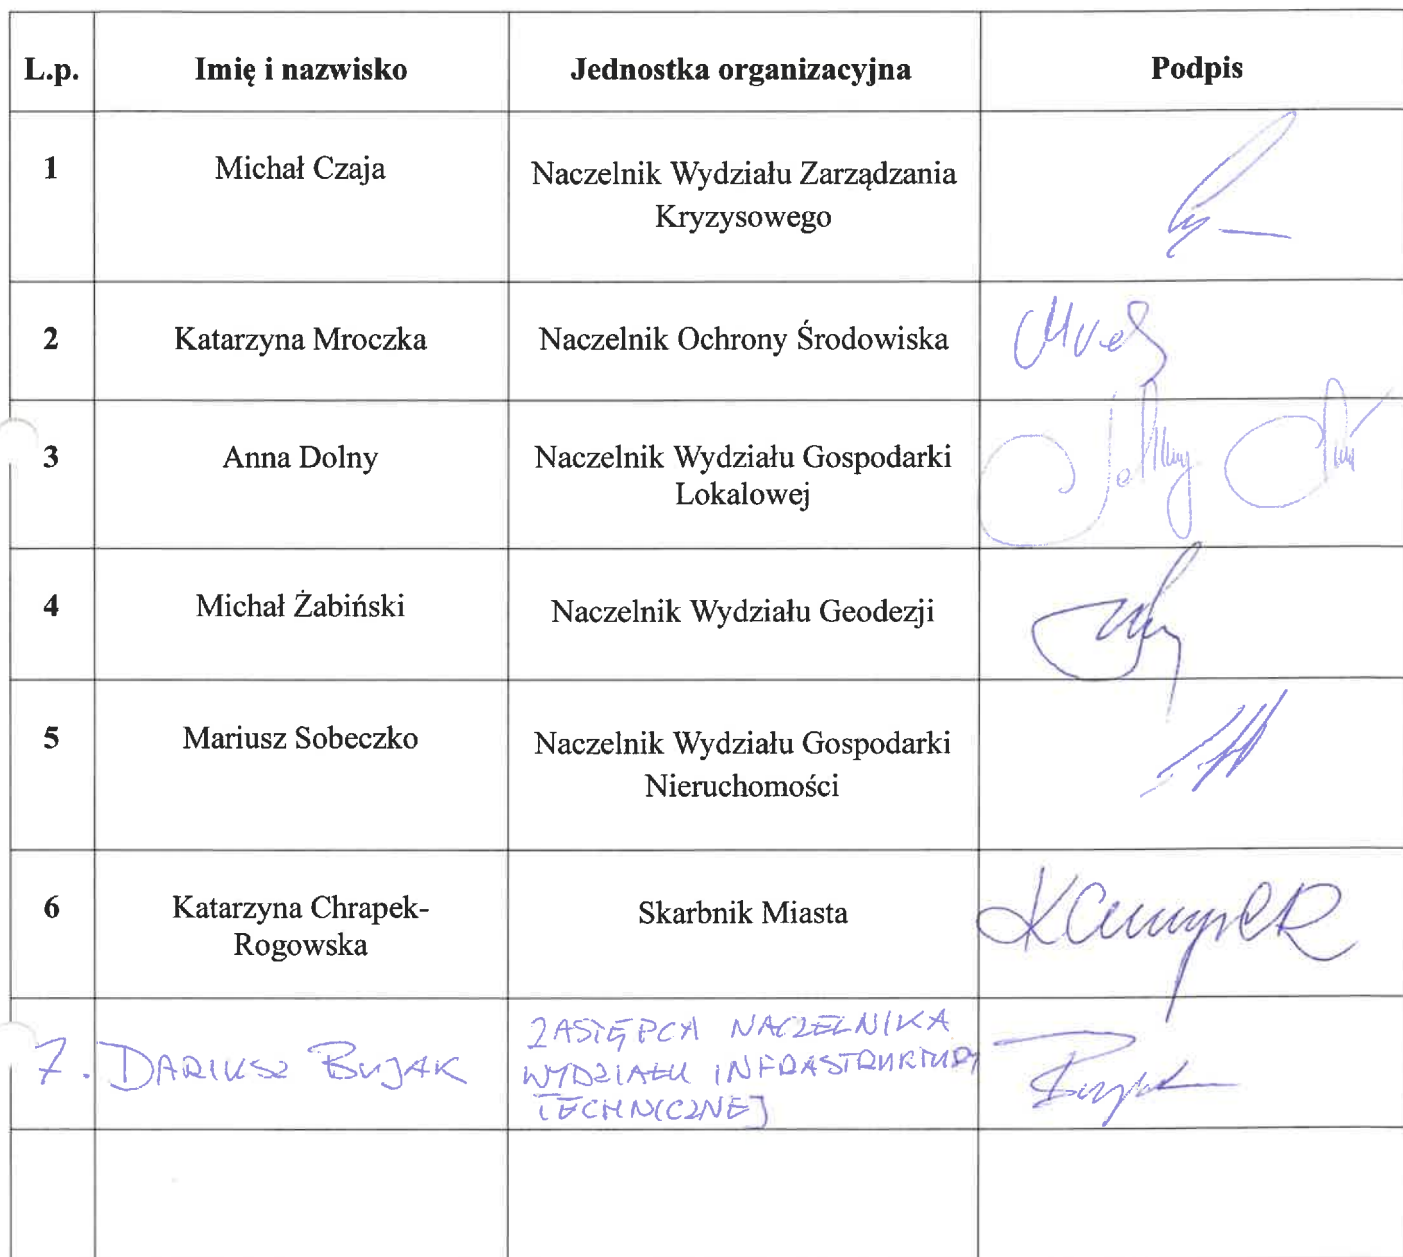 L.p. Imię i nazwisko Jednostka organizacyjna Podpis
1 Michał Czaja Naczelnik Wydziału Zarządzania
Kryzysowego
2 Katarzyna Mroczka Naczelnik Ochrony Środowiska
3 Anna Dolny Naczelnik Wydziału Gospodarki
Lokalowej
4 Michał Żabiński Naczelnik Wydziału Geodezji
5 Mariusz Sobeczko Naczelnik Wydziału Gospodarki
Nieruchomości
6 Katarzyna Chrapek-
Rogowska
Skarbnik Miasta
7. DARIUSZ BUJAK
ZASTĘPCA NACZELNIKA
WYDZIAŁU INFRASTRUKTURY
TECHNICZNEJ